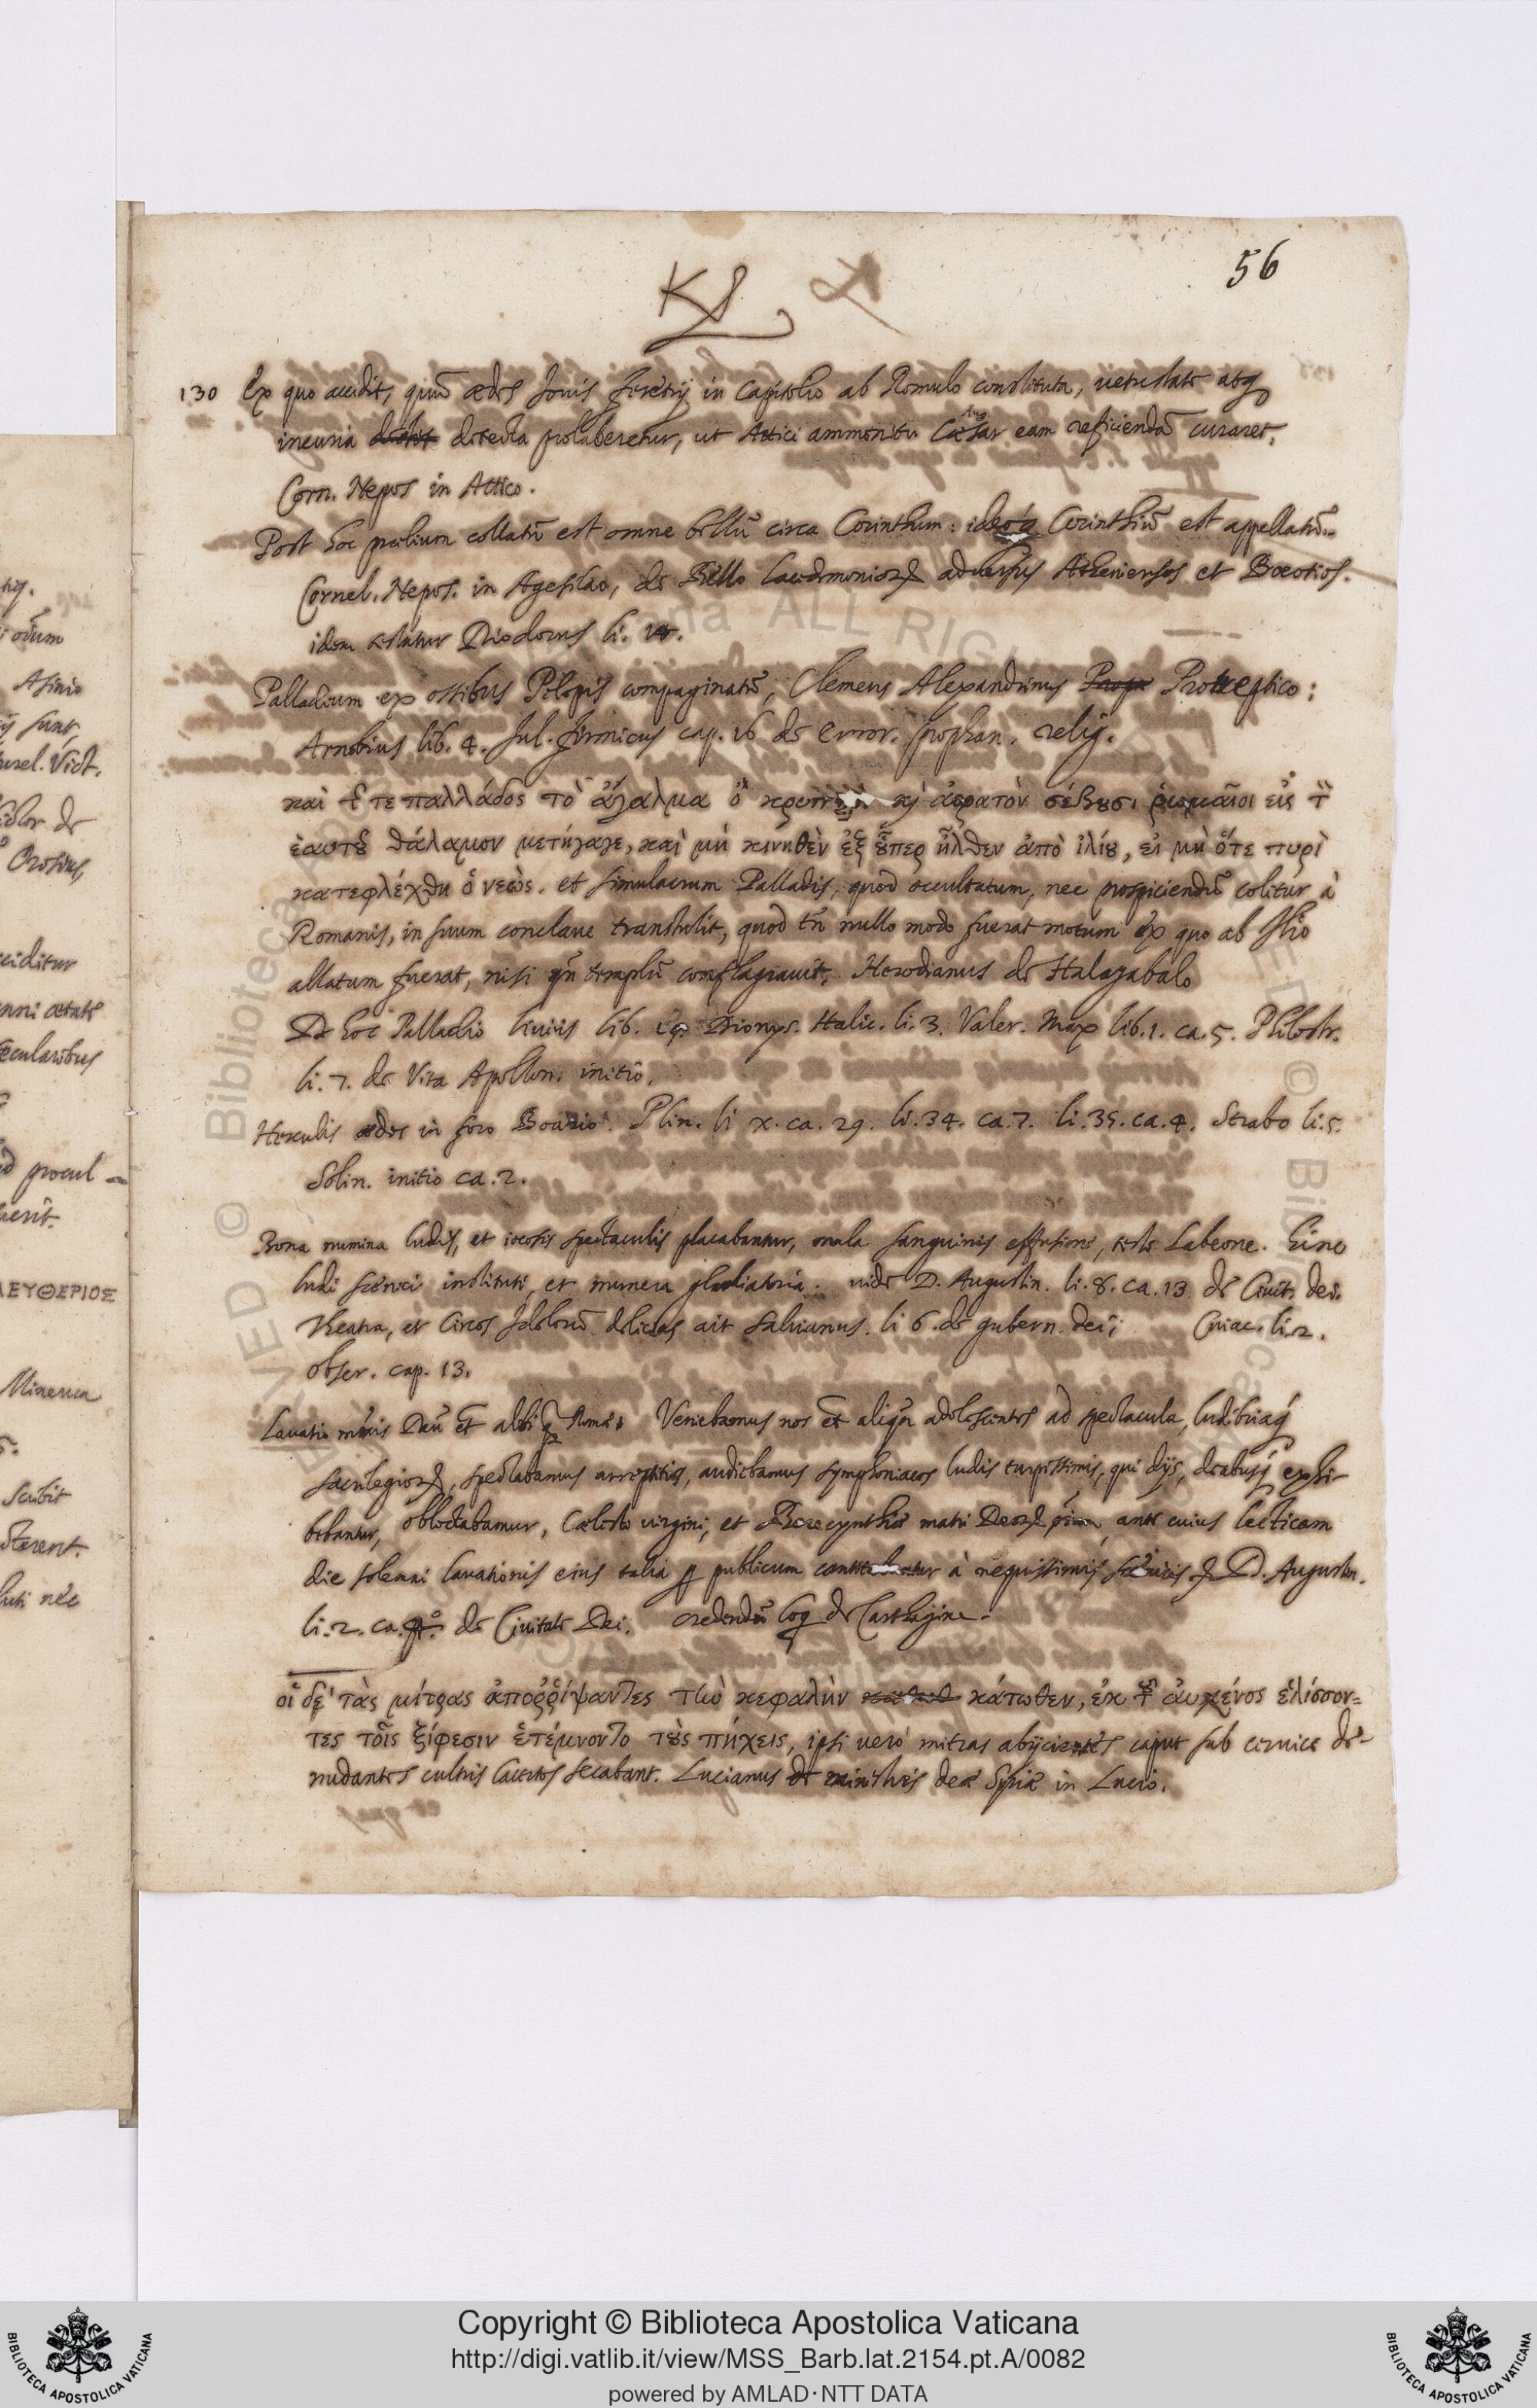 56
130 Ex quo accidit, quũ ædes Iovis Feretrij in Capitolio ab Romulo constituta, uetustate atq
incuria detecta prolaberetur, ut Attici ammonitu Cæsar eam reficiendã curaret.
Corn. Nepos in Attico.
Post hoc prælium collatũ est omne bellũ circa Corinthum: ideoq Corinthiũ est appellatũ.
Cornel. Nepos. in Agesilao, de Bello Lacedemonior adversus Athenienses et Bœotios.
idem testatur Diodorus li. 14.
Palladium ex ossibus Pelopis compaginatũ, Clemens Alexandrinus Protreptico:
Arnobius lib. 4. Iul. Firmicus cap. 16 de error. prophan. relig.
καὶ τ τε παλλάδος τὸ ἄγαλμα ὃ κρυπτὸν κὶ ἀόρατὸν σέβουσι ῥωμαῖοι εἰς τ̃
ἑαυτοῦ θάλαμον μετήγαγε, καὶ μὴ κινηθὲν ἐξ οὗπερ ἦλθεν ἀπὸ ἰλίου, εἰ μὴ ὅτε πυρὶ
κατεφλέχθη ὁ νεώς. et simulacrum Palladis, quod occultatum, nec prospiciendũ colitur à
Romanis, in suum conclave transtulit, quod tñ nullo modo fuerat motum ex quo ab Ilio
allatum fuerat, nisi qñ templũ conflagrauit, Herodianus de Halagabalo
De hoc Palladio Liuius lib. Dionys. Halic. li. 3. Valer. Max lib. 1. ca. 5. Philostr.
li. 7. de Vita Apollon. initio.
Herculis ædes in foro Boario. Plin. li x. ca. 29. li. 34. ca. 7. li. 35. ca. 4. Strabo li. 5.
Solin. initio ca. 2.
Bona numina ludis, et iocosis spectaculis placabantur, mala sanguinis effusione, teste Labeone. Hinc
ludi scenici instituti, et munera gladiatoria. uide D. Augustin. li. 8. ca. 13 de Civit. dei.
Theatra, et Circos Idolorũ delicias ait Salvianus. li 6. de gubern. dei; Cuiac. li. 2.
obser. cap. 13.
Lauatio mris Deũ et alibi q Romæ. Veniebamus nos et aliqñ adolescentes ad spectacula, ludibriaq
sacrilegior, spectabamus arreptitios, audiebamus symphoniacos ludis turpissimis, qui dijs, deabusq exhi-
bebantur, oblectabamur, Cœlesti virgini, et Berecynthiæ matri Deor ante cuius lecticam
die solemni lauationis eius talia p publicum cantitabantur à nequissimis scenicis D. Augustin.
li. 2. ca. 4º. de Civitate Dei. credendũ loq de Carthagine.
οἱ δὲ τὰς μίτρας ἀπορρίψαντες τὴν κεφαλὴν κάτωθεν, ἐκ τ αὐχένος ἑλίσσον=
τες τοῖς ξίφεσιν ἐτέμνοντο τοὺς πήχεις, ipsi uerò mitras abijcientes caput sub ceruice de-
nudantes cultris lacertos secabant. Lucianus de ministris deæ Syriæ in Lucio.
Asinio
sunt,
Vict.
Orosius,
Minerua
ΛΕΥΘΕΡΙΟΣ
procul
Copyright © Biblioteca Apostolica Vaticana
http://digi.vatlib.it/view/MSS_Barb.lat.2154.pt.A/0082
powered by AMLAD·NTT DATA
BIBLIOTECA APOSTOLICA VATICANA
BIBLIOTECA APOSTOLICA VATICANA